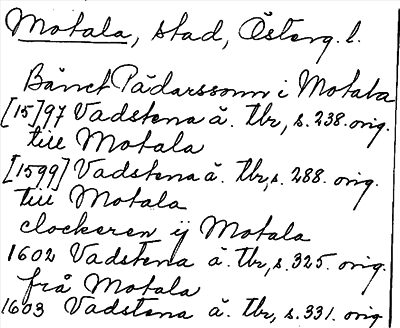 Motala, stad, Österg. l.
Bänct Pädarssonn i Motala
[15]97 Vadstena ä. tbr, s. 238. orig.
till Motala
[1599] Vadstena ä. tbr, s. 288. orig.
till Motala
clockeren ij Motala
1602 Vadstena ä. tbr, s. 325. orig.
frå Motala
1603 Vadstena ä. tbr, s. 331. orig.